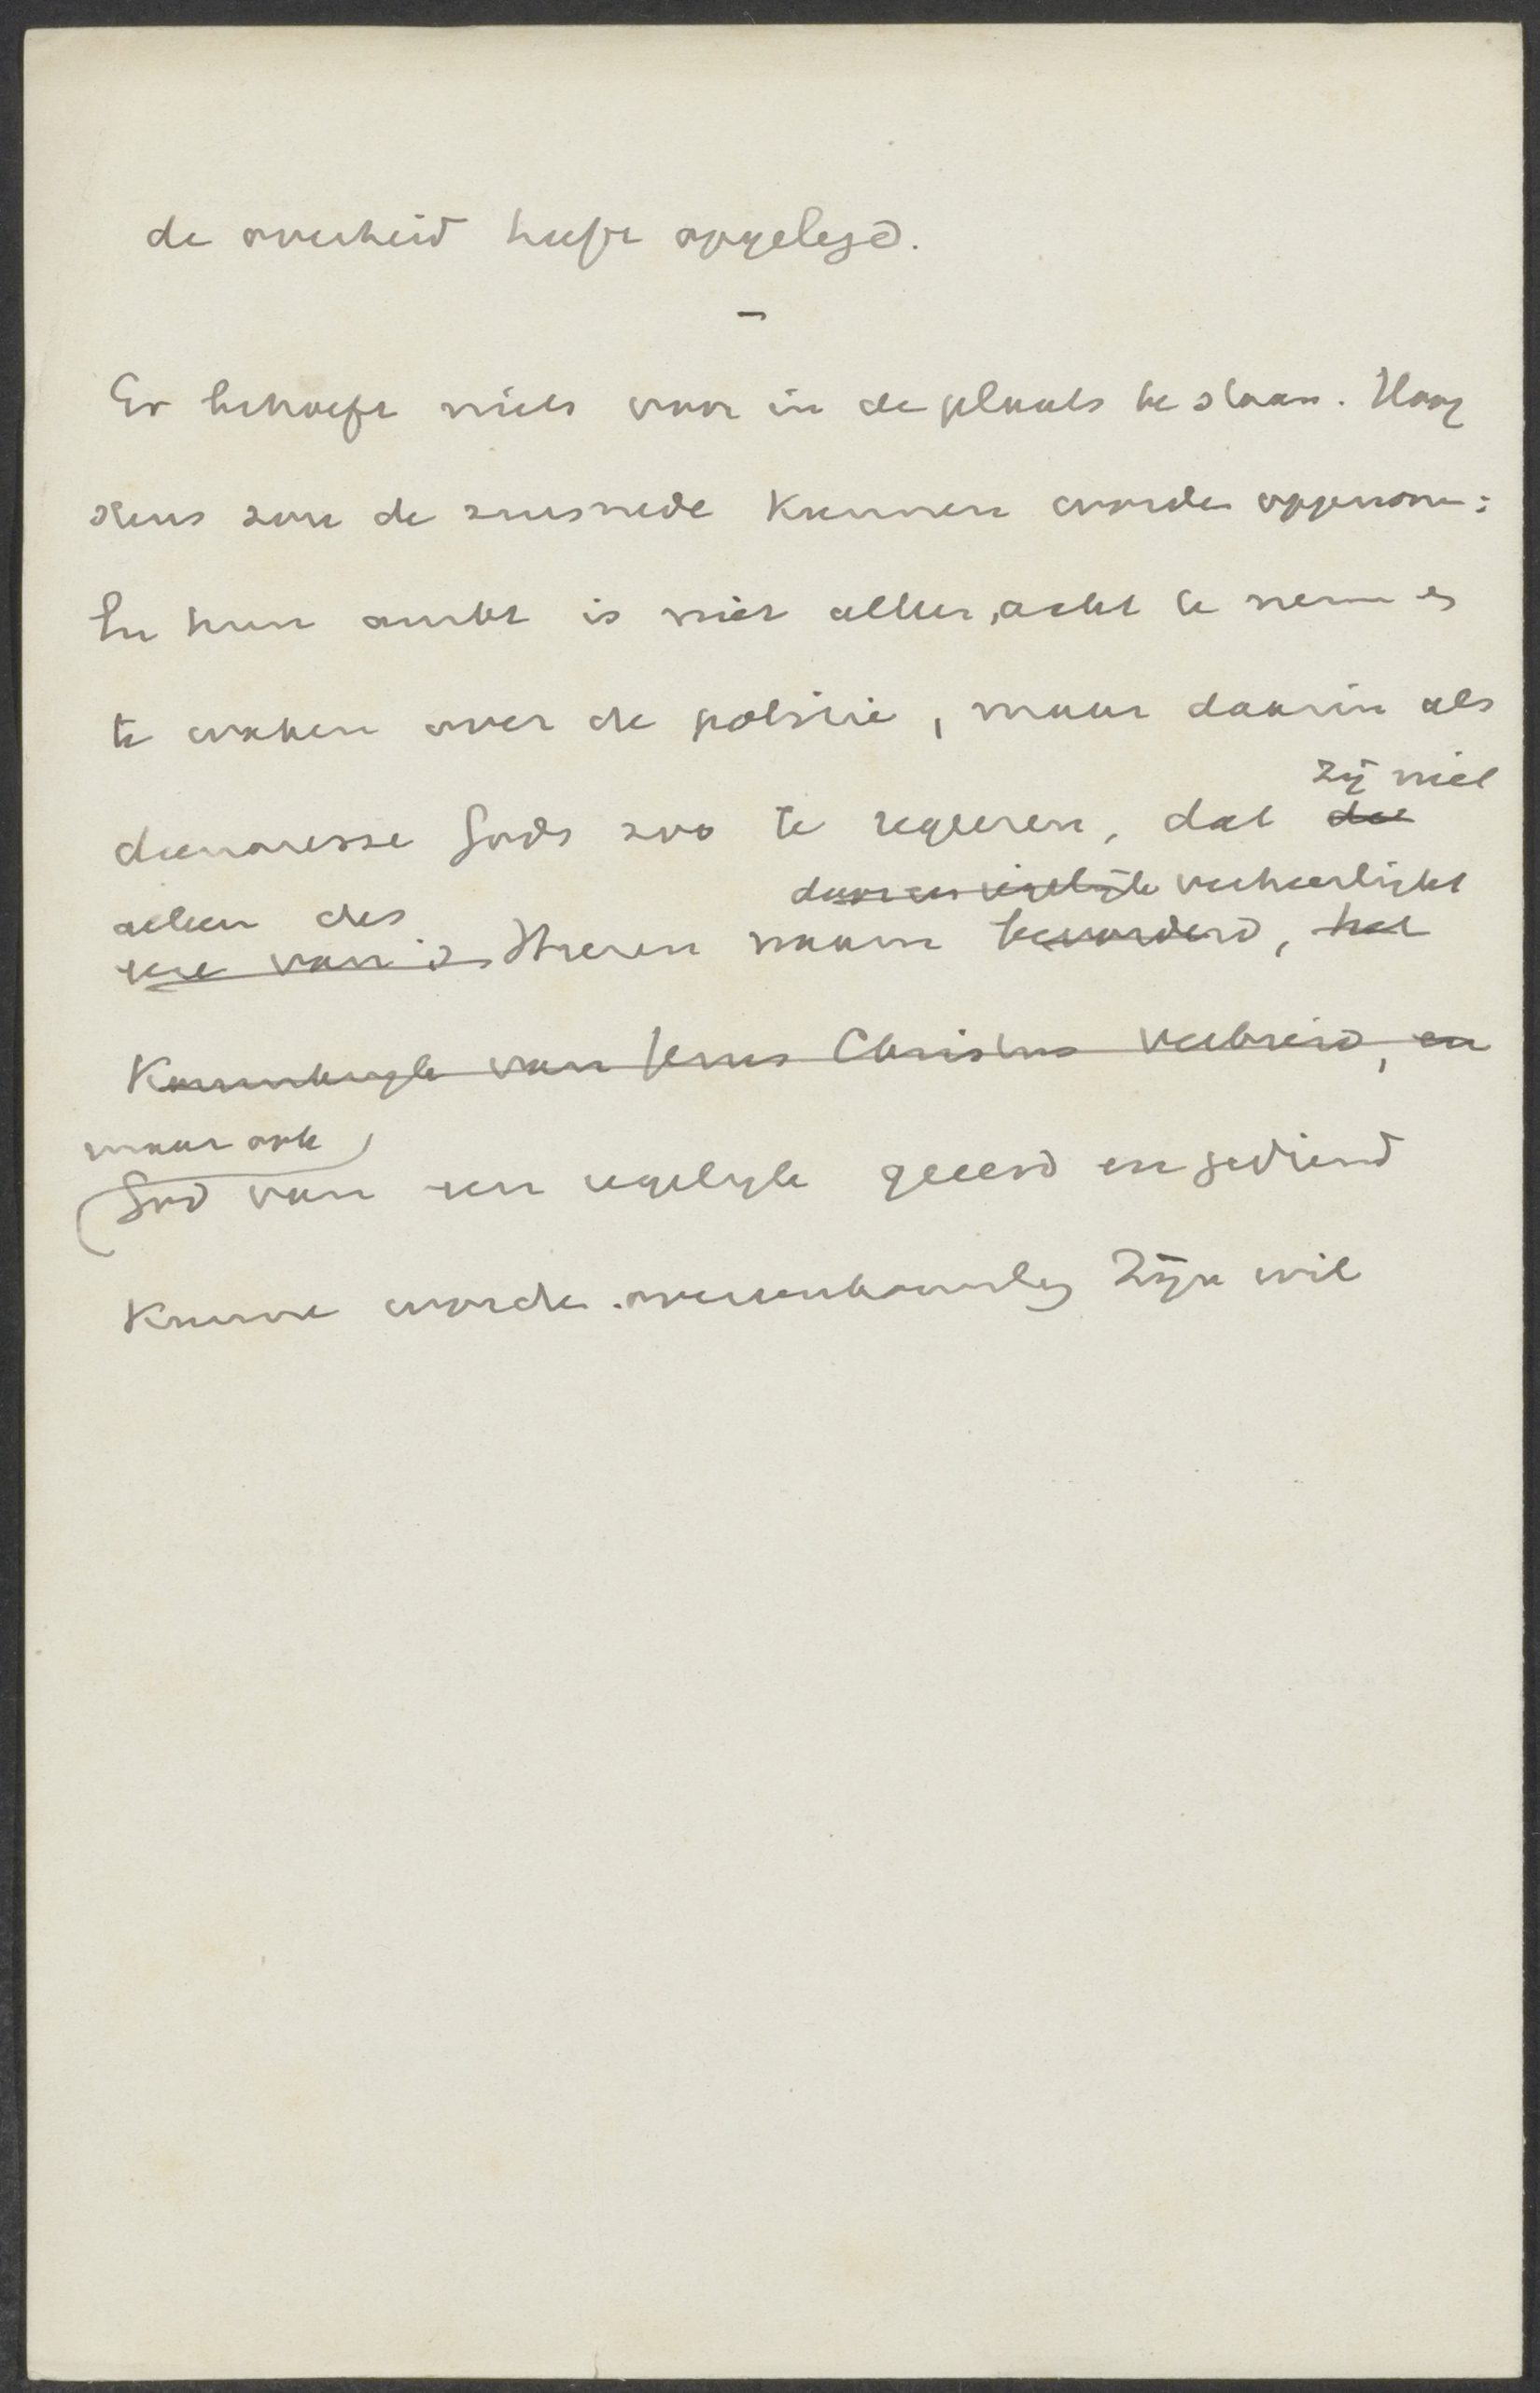 de overheid heeft opgelegd.
–
Er behoeft niets voor in de plaats te staan. Hoog
stens zou de zinsnede kunnen worden opgenom:
En hun ambt is niet alleen, acht te nemen en
te waken over de politie, maar daarin als
zij niet
dienaresse Gods zoo te regeeren, dat die
door een iegelijk verheerlijkt
alleen des
eere van 's Heeren naam bevorderd, het
Koninkrijk van Jezus Christus verbreid, en
maar ook
God van een iegelijk geeerd en gediend
kunne worden overeenkomstig Zijn wil